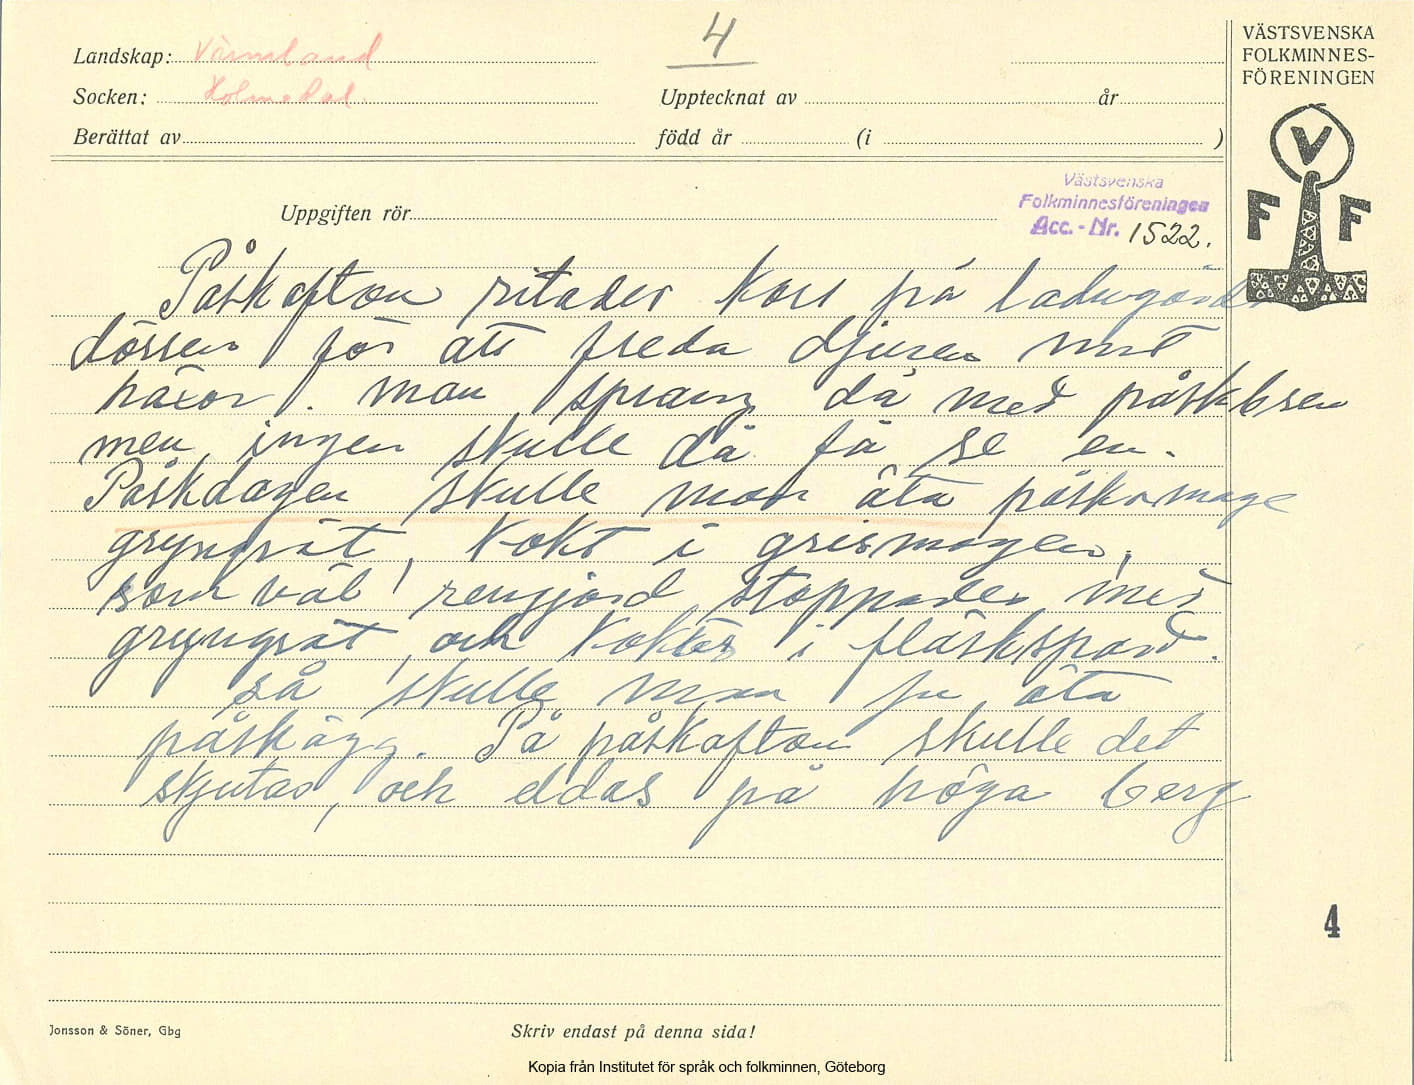 4
VÄSTSVENSKA
FOLKMINNES-
FÖRENINGEN
Landskap: Värmland
Socken: Holmedal
Upptecknat av år
Berättat av född år (i )
V
F F
Västsvenska
Folkminnesföreningen
Acc.-Nr. 1522.
Uppgiften rör
Påskafton ritades kors på ladugårds
dörren för att freda djuren mot
häxor. man sprang då med påskbrev
men ingen skulle då få se en.
Påskdagen skulle man äta påskamage
gryngröt, kokt i grismagen,
som väl rengjord stoppades med
gryngröt, och koktes i fläskspad.
så skulle man ju äta
påskägg. På påskafton skulle det
skjutas, och eldas på höga berg
4
Jonsson & Söner, Gbg
Skriv endast på denna sida!
Kopia från Institutet för språk och folkminnen, Göteborg